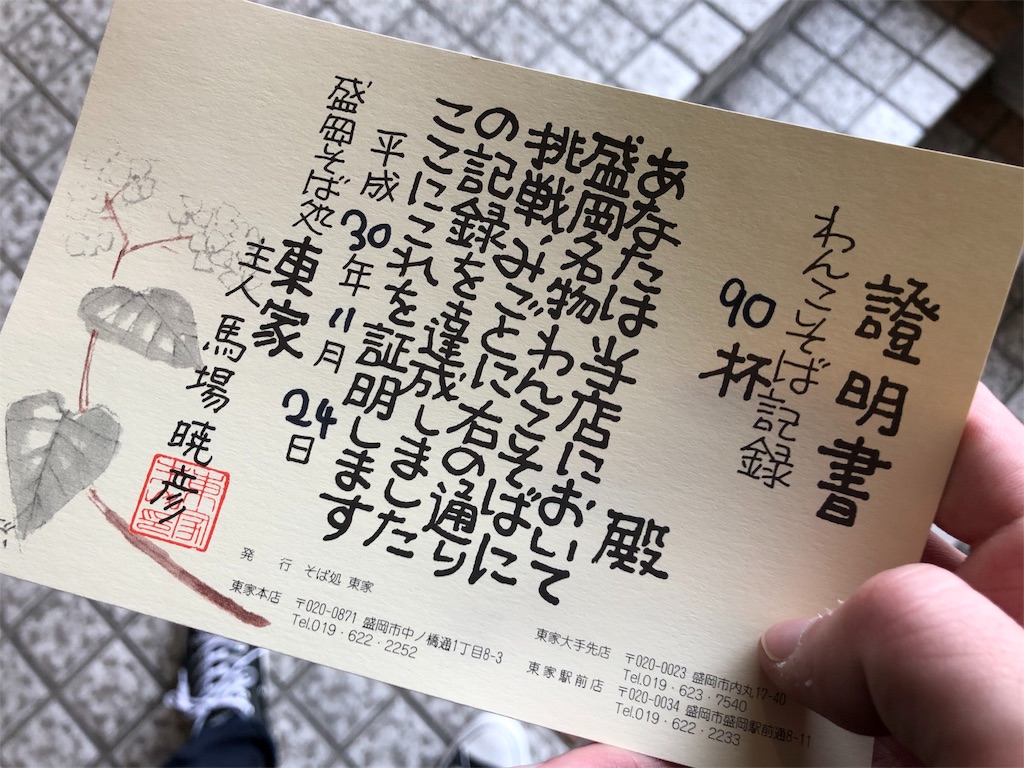 證明書
わんこそば記録
90杯
殿
あなたは当店において
盛岡名物わんこそばに
挑戦、みごとに右の通り
の記録を達成しました
ここにこれを証明します
平成30年11月24日
盛岡そば処 東家
主人 馬場暁彦
東家
発行 そば処 東家
東家本店 〒020-0871 盛岡市中ノ橋通1丁目8-3
Tel.019・622・2252
東家大手先店 〒020-0023 盛岡市内丸17-40
Tel.019・623・7540
東家駅前店 〒020-0034 盛岡市盛岡駅前通8-11
Tel.019・622・2233